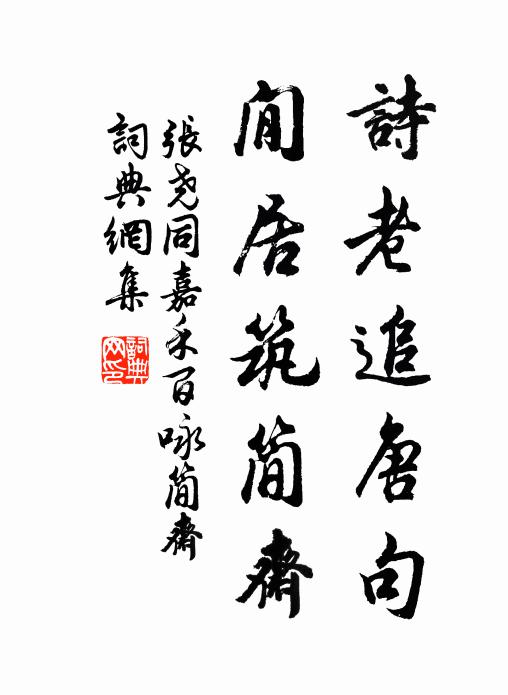 詩老追唐句
閒居筑簡齋
張堯同嘉禾百咏簡齋
詞典網集
詞典網印